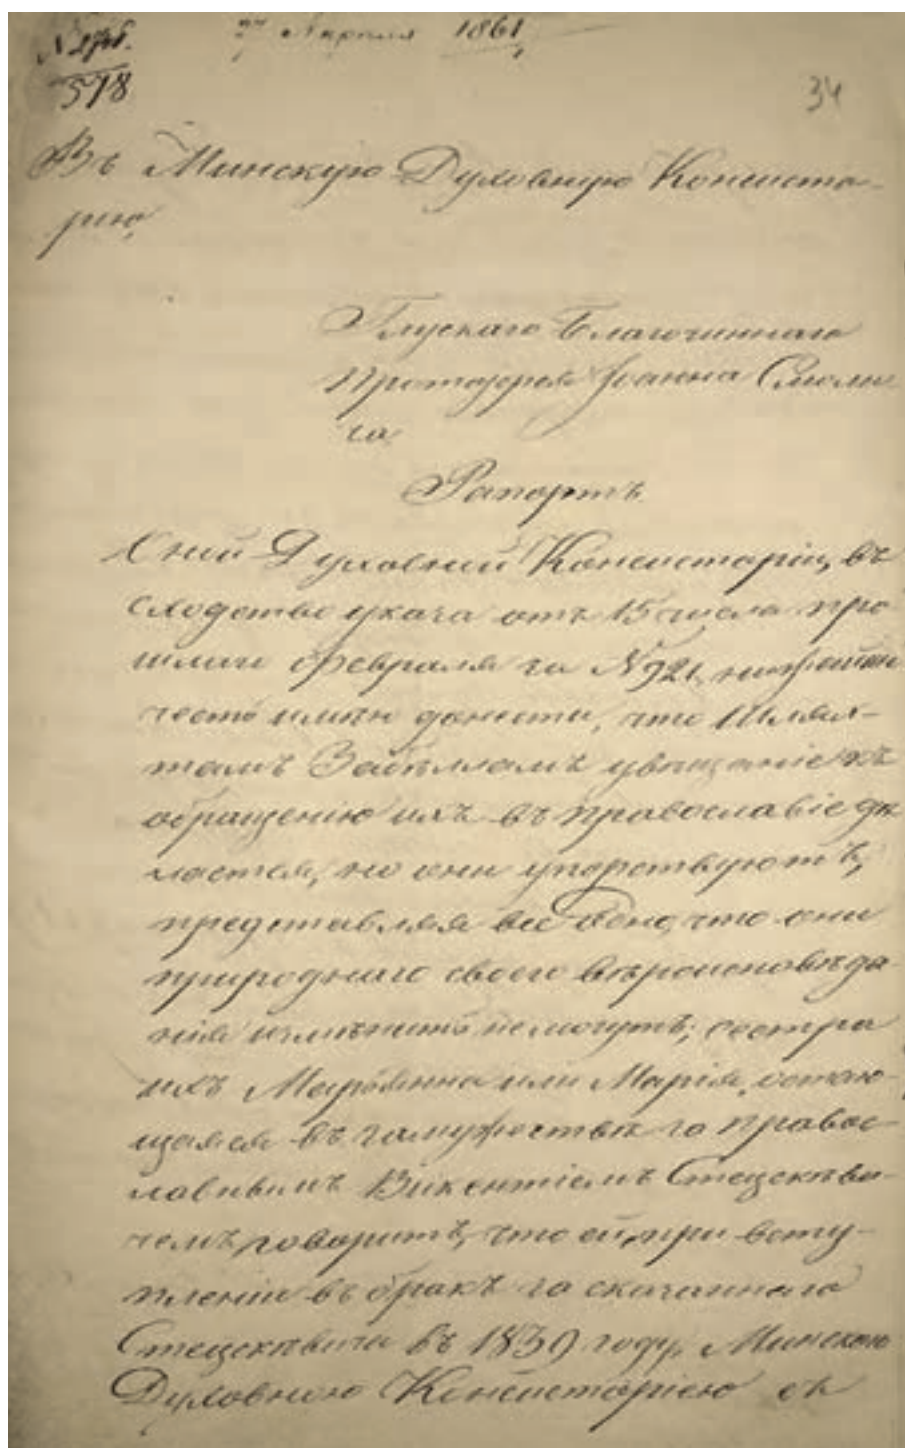 Апреля 1861
578
34
Въ Минскую Духовную Консисто-
рію,
Глускаго Благочиннаго
Протоіерея Іоанна Смоли
ча
Рапортъ
Оной Духовной Консисторіи, въ
следствіе указа отъ 15 числа про
шлаго февраля за №921, нижайше
честь имѣю донести, что Шлях-
тамъ Забѣлламъ увѣщаніе къ
обращенію ихъ въ православіе дѣ
лается, но они упорствуютъ,
представляя все одно, что они
природнаго своего вѣроисповѣда-
нія измѣнить немогутъ; сестра
ихъ Марьянна или Марія, состоя-
щаяся въ замужествѣ за правос-
лавнымъ Викентіемъ Стецкѣви-
чемъ, говоритъ, что ей, при всту-
пленіи въ бракъ за сказаннаго
Стецкѣвича въ 1839 году, Минскою
Духовною Консисторіею съ